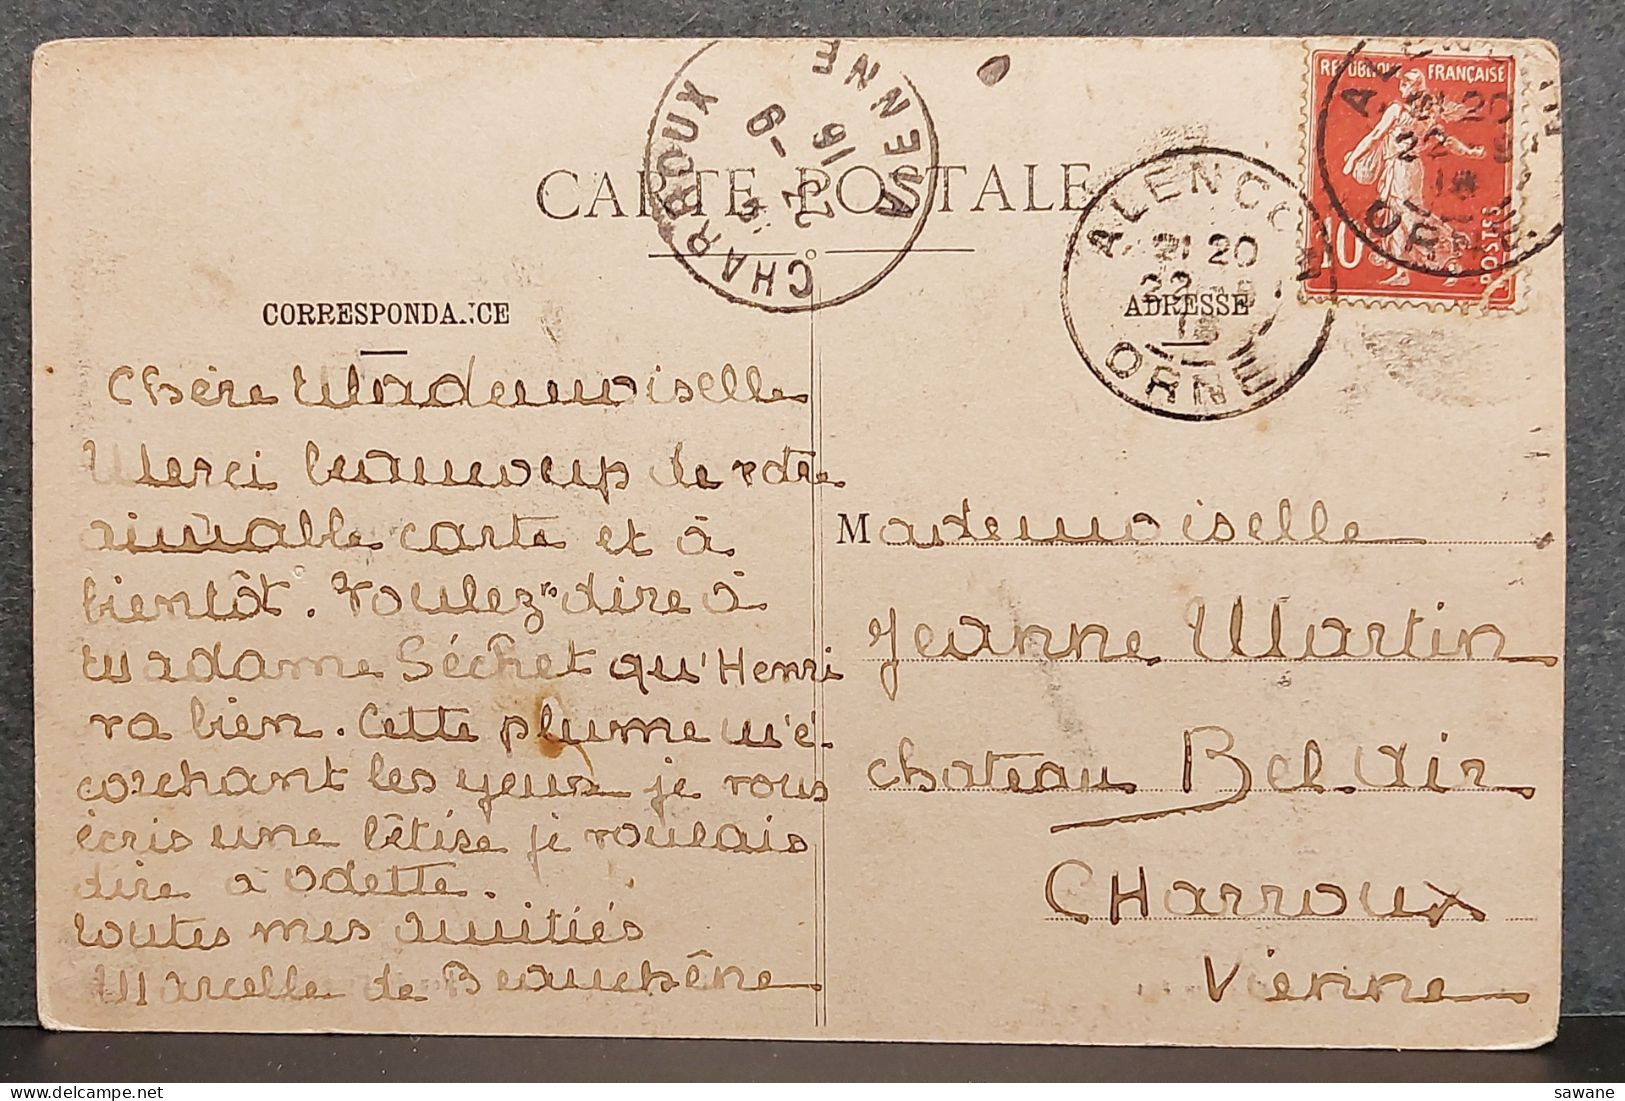 CARTE POSTALE
CORRESPONDANCE
Chère Mademoiselle
Merci beaucoup de votre
aimable carte et à
bientôt. Voulez-dire à
Madame Séchet qu'Henri
va bien. Cette plume m'é-
corchant les yeux je vous
écris une bêtise je voulais
dire à Odette.
toutes mes amitiés
Marcelle de Beauchêne
CHARROUX
VIENNE
ALENCON
21 20
22
ORNE
ADRESSE
RÉPUBLIQUE FRANÇAISE
10
POSTES
ORNE
Mademoiselle
Jeanne Martin
chateau Bel Air
CHarroux
Vienne
sawane